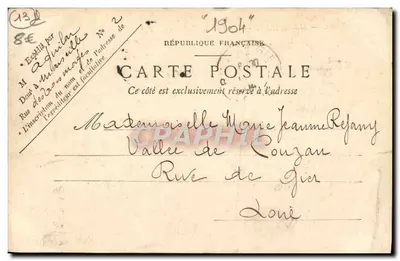 13
8€
"1904"
RÉPUBLIQUE FRANÇAISE
CARTE POSTALE
Ce côté est exclusivement réservé à l'adresse
Expédié par
M
Dom à Marseille
Rue No 2
L'inscription du nom et de l'adresse de
l'expéditeur est facultative
CPAPHIL
Mademoiselle Marie Jeanne
Vallée de Couzan
Rive de Gier
Loire